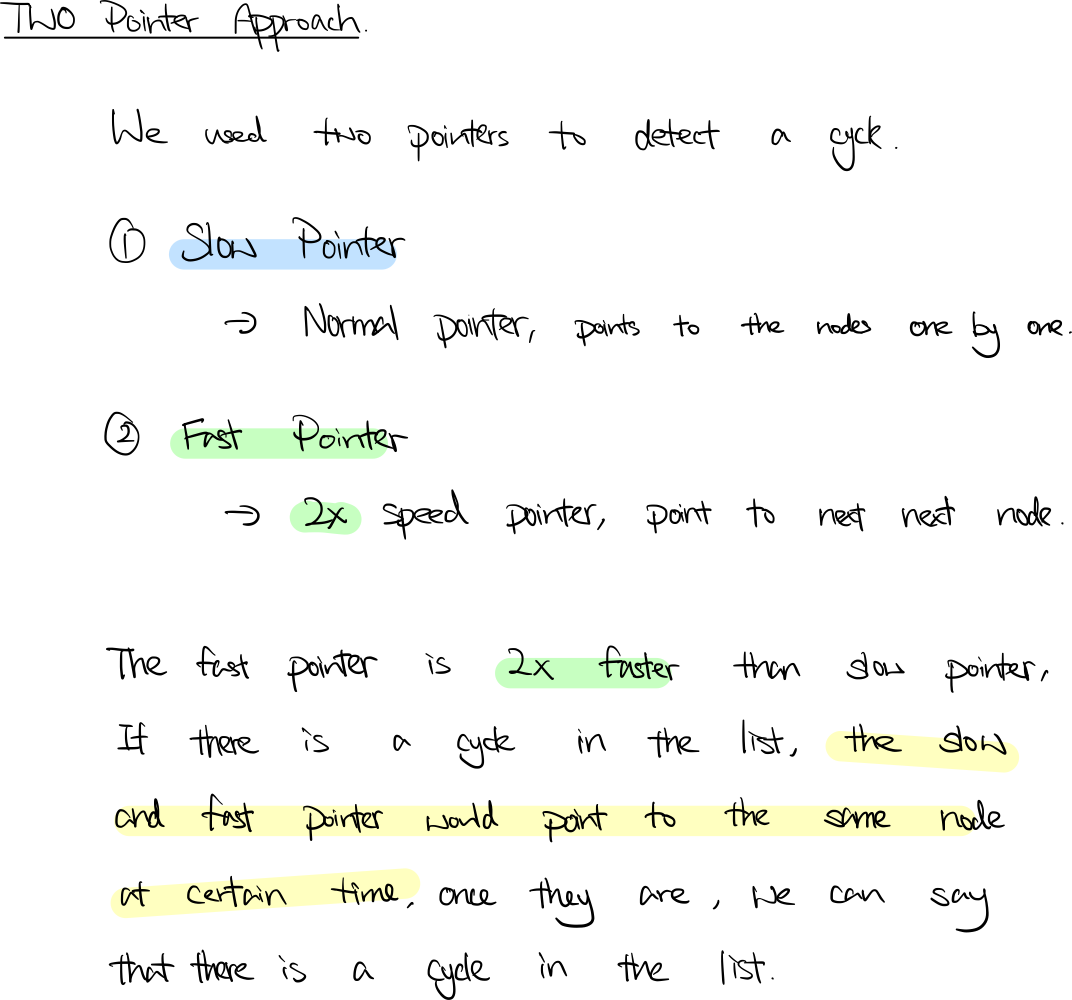 Two Pointer Approach.
We used two pointers to detect a cycle.
① Slow Pointer
→ Normal pointer, points to the nodes one by one.
② Fast Pointer
→ 2x speed pointer, point to next next node.
The fast pointer is 2x faster than slow pointer,
If there is a cycle in the list, the slow
and fast pointer would point to the same node
at certain time, once they are, we can say
that there is a cycle in the list.